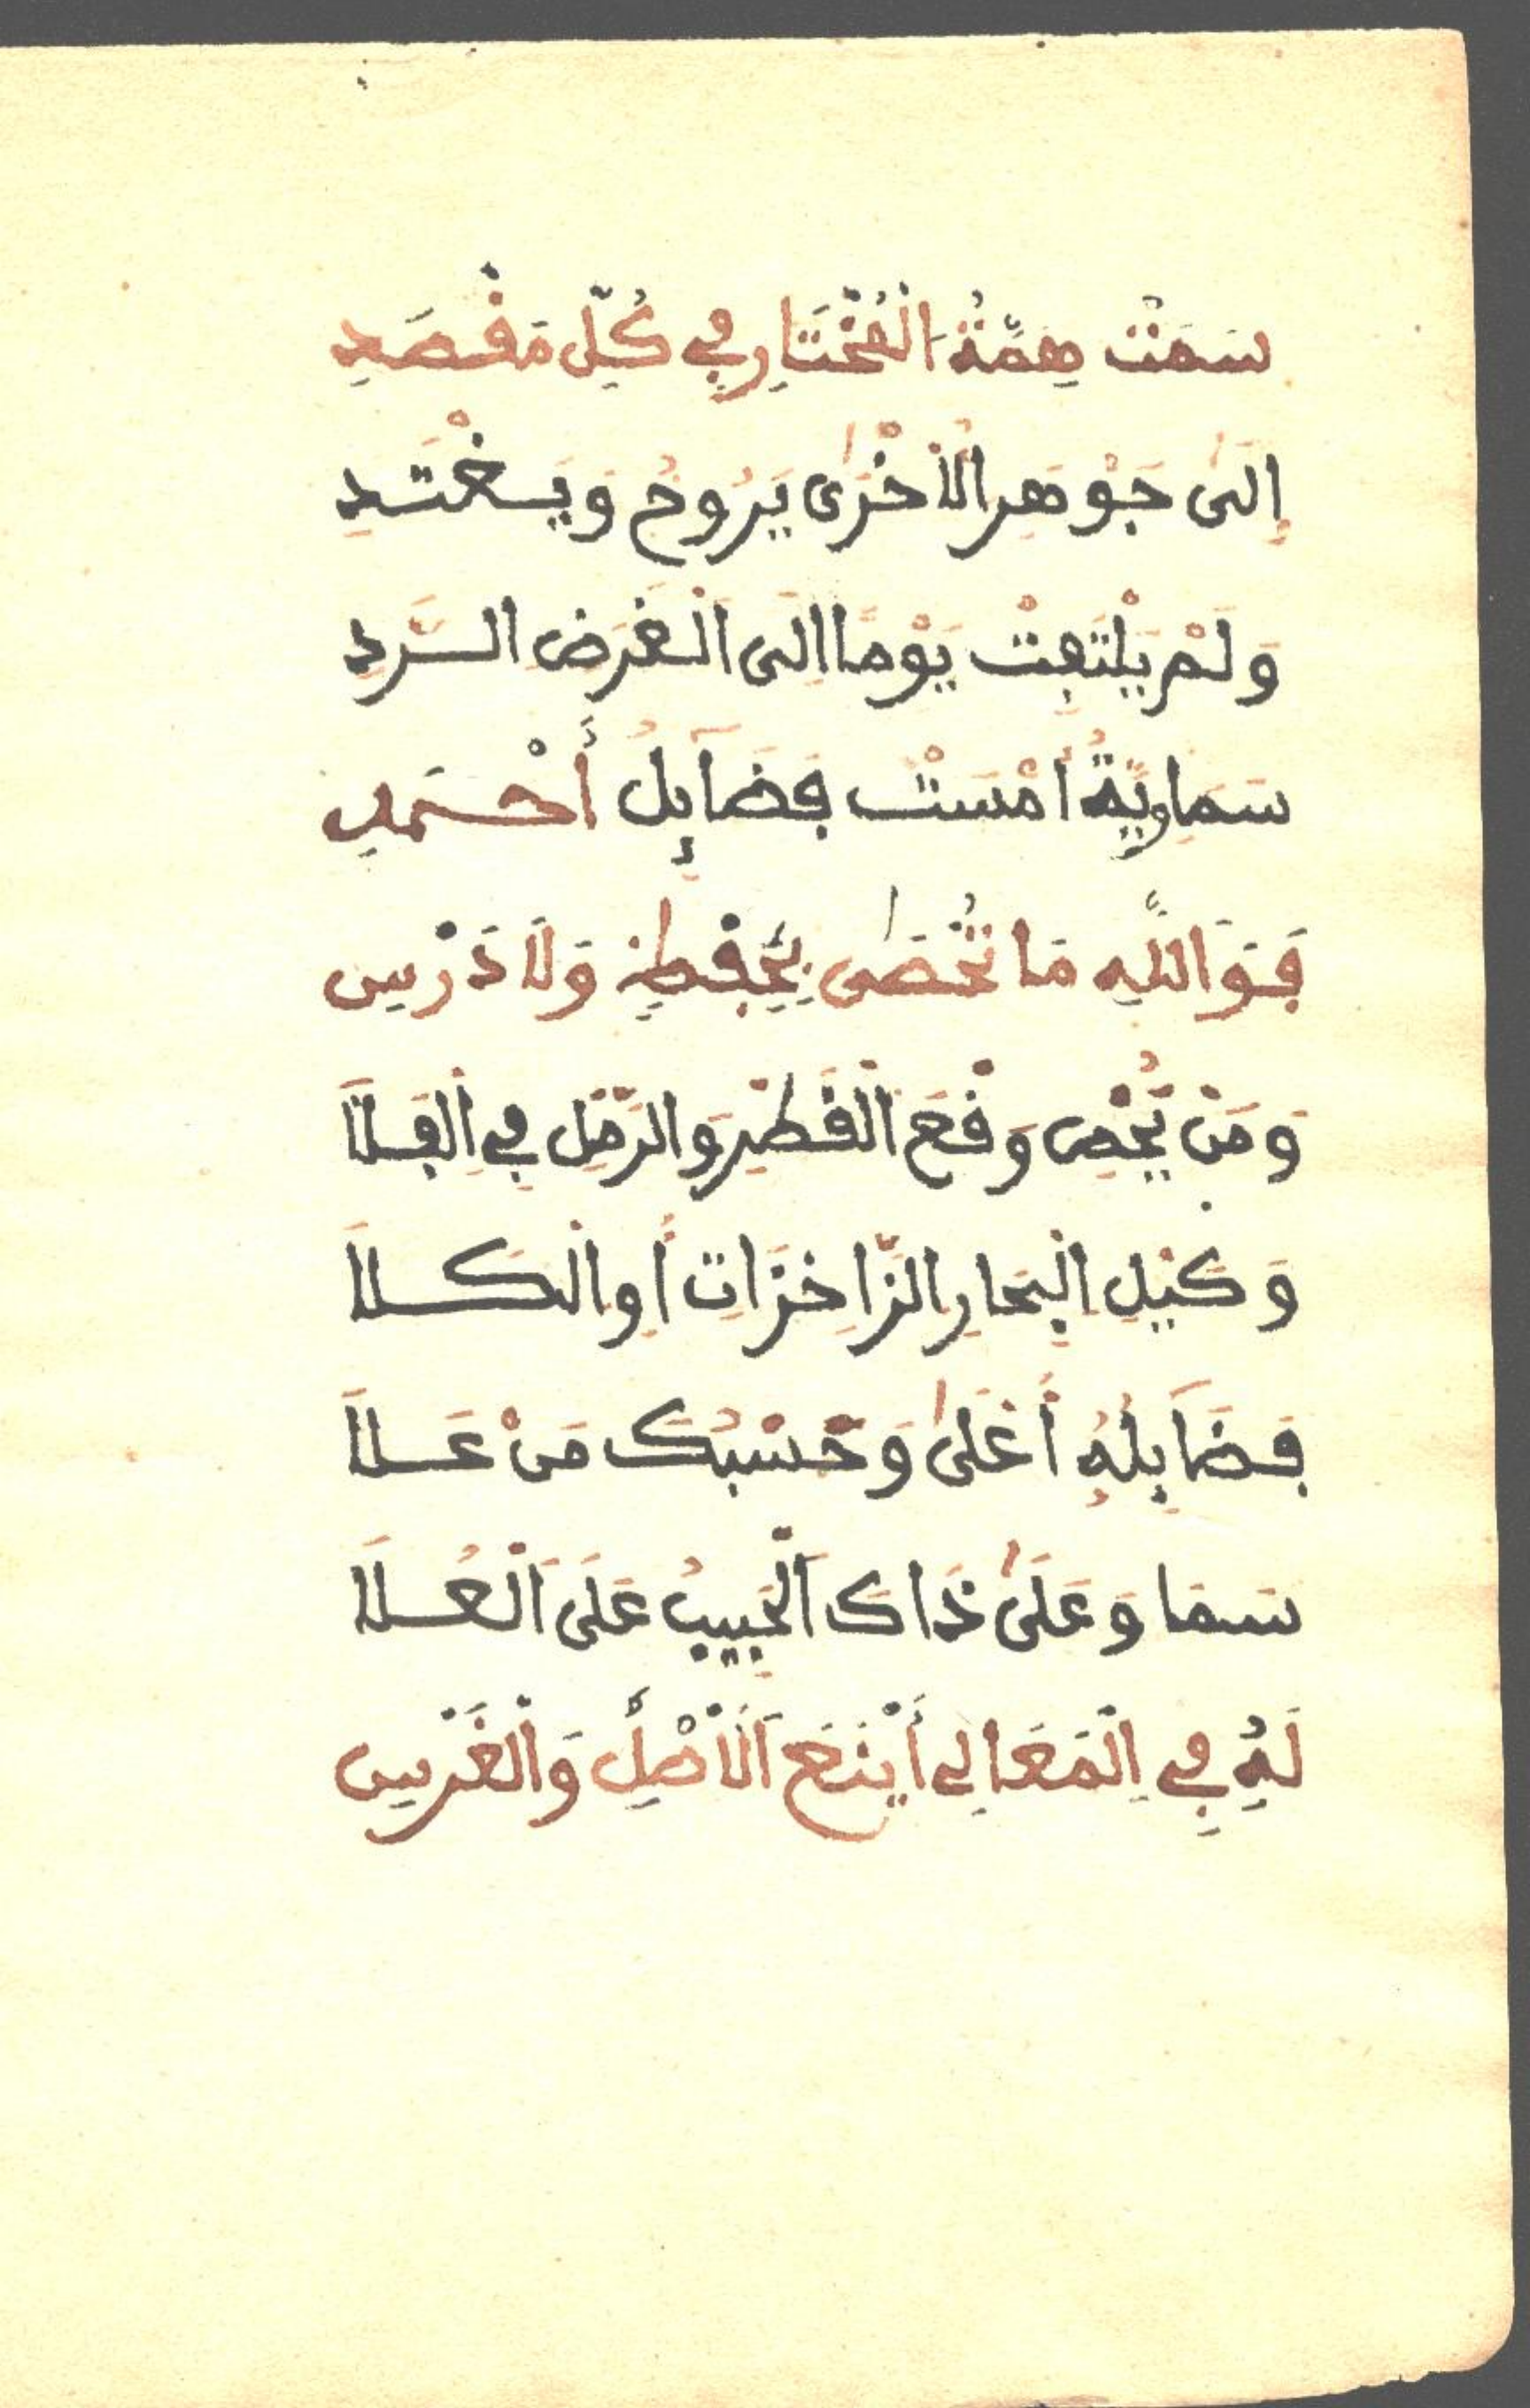 سَمَتْ هِمَّةُ الْمُخْتَارِ فِي كُلِّ مَقْصَدِ
إِلَى جَوْهَرِ الْأُخْرَى يَرُوحُ وَيَغْتَدِ
وَلَمْ يَلْتَفِتْ يَوْمًا إِلَى الْغَرَضِ الرَّدِ
سَمَاوِيَّةً أَمْسَتْ فَضَآئِلُ أَحْمَدِ
فَوَاللَّهِ مَا تُحْصَى بِحِفْظٍ وَلَا دَرْسِ
وَمَنْ يُحْصِ وَقْعَ الْقَطْرِ وَالرَّمْلِ فِي الْفَلَا
وَكَيْلِ الْبِحَارِ الزَّاخِرَاتِ أَوِ الْكَلَا
فَضَآئِلُهُ أَعْلَى وَحَسْبُكَ مَنْ عَلَا
سَمَا وَعَلَى ذَاكَ الْحَبِيبُ عَلَى الْعُلَا
لَهُ فِي الْمَعَالِي أَيْنَعُ الْأَصْلِ وَالْغَرْسِ